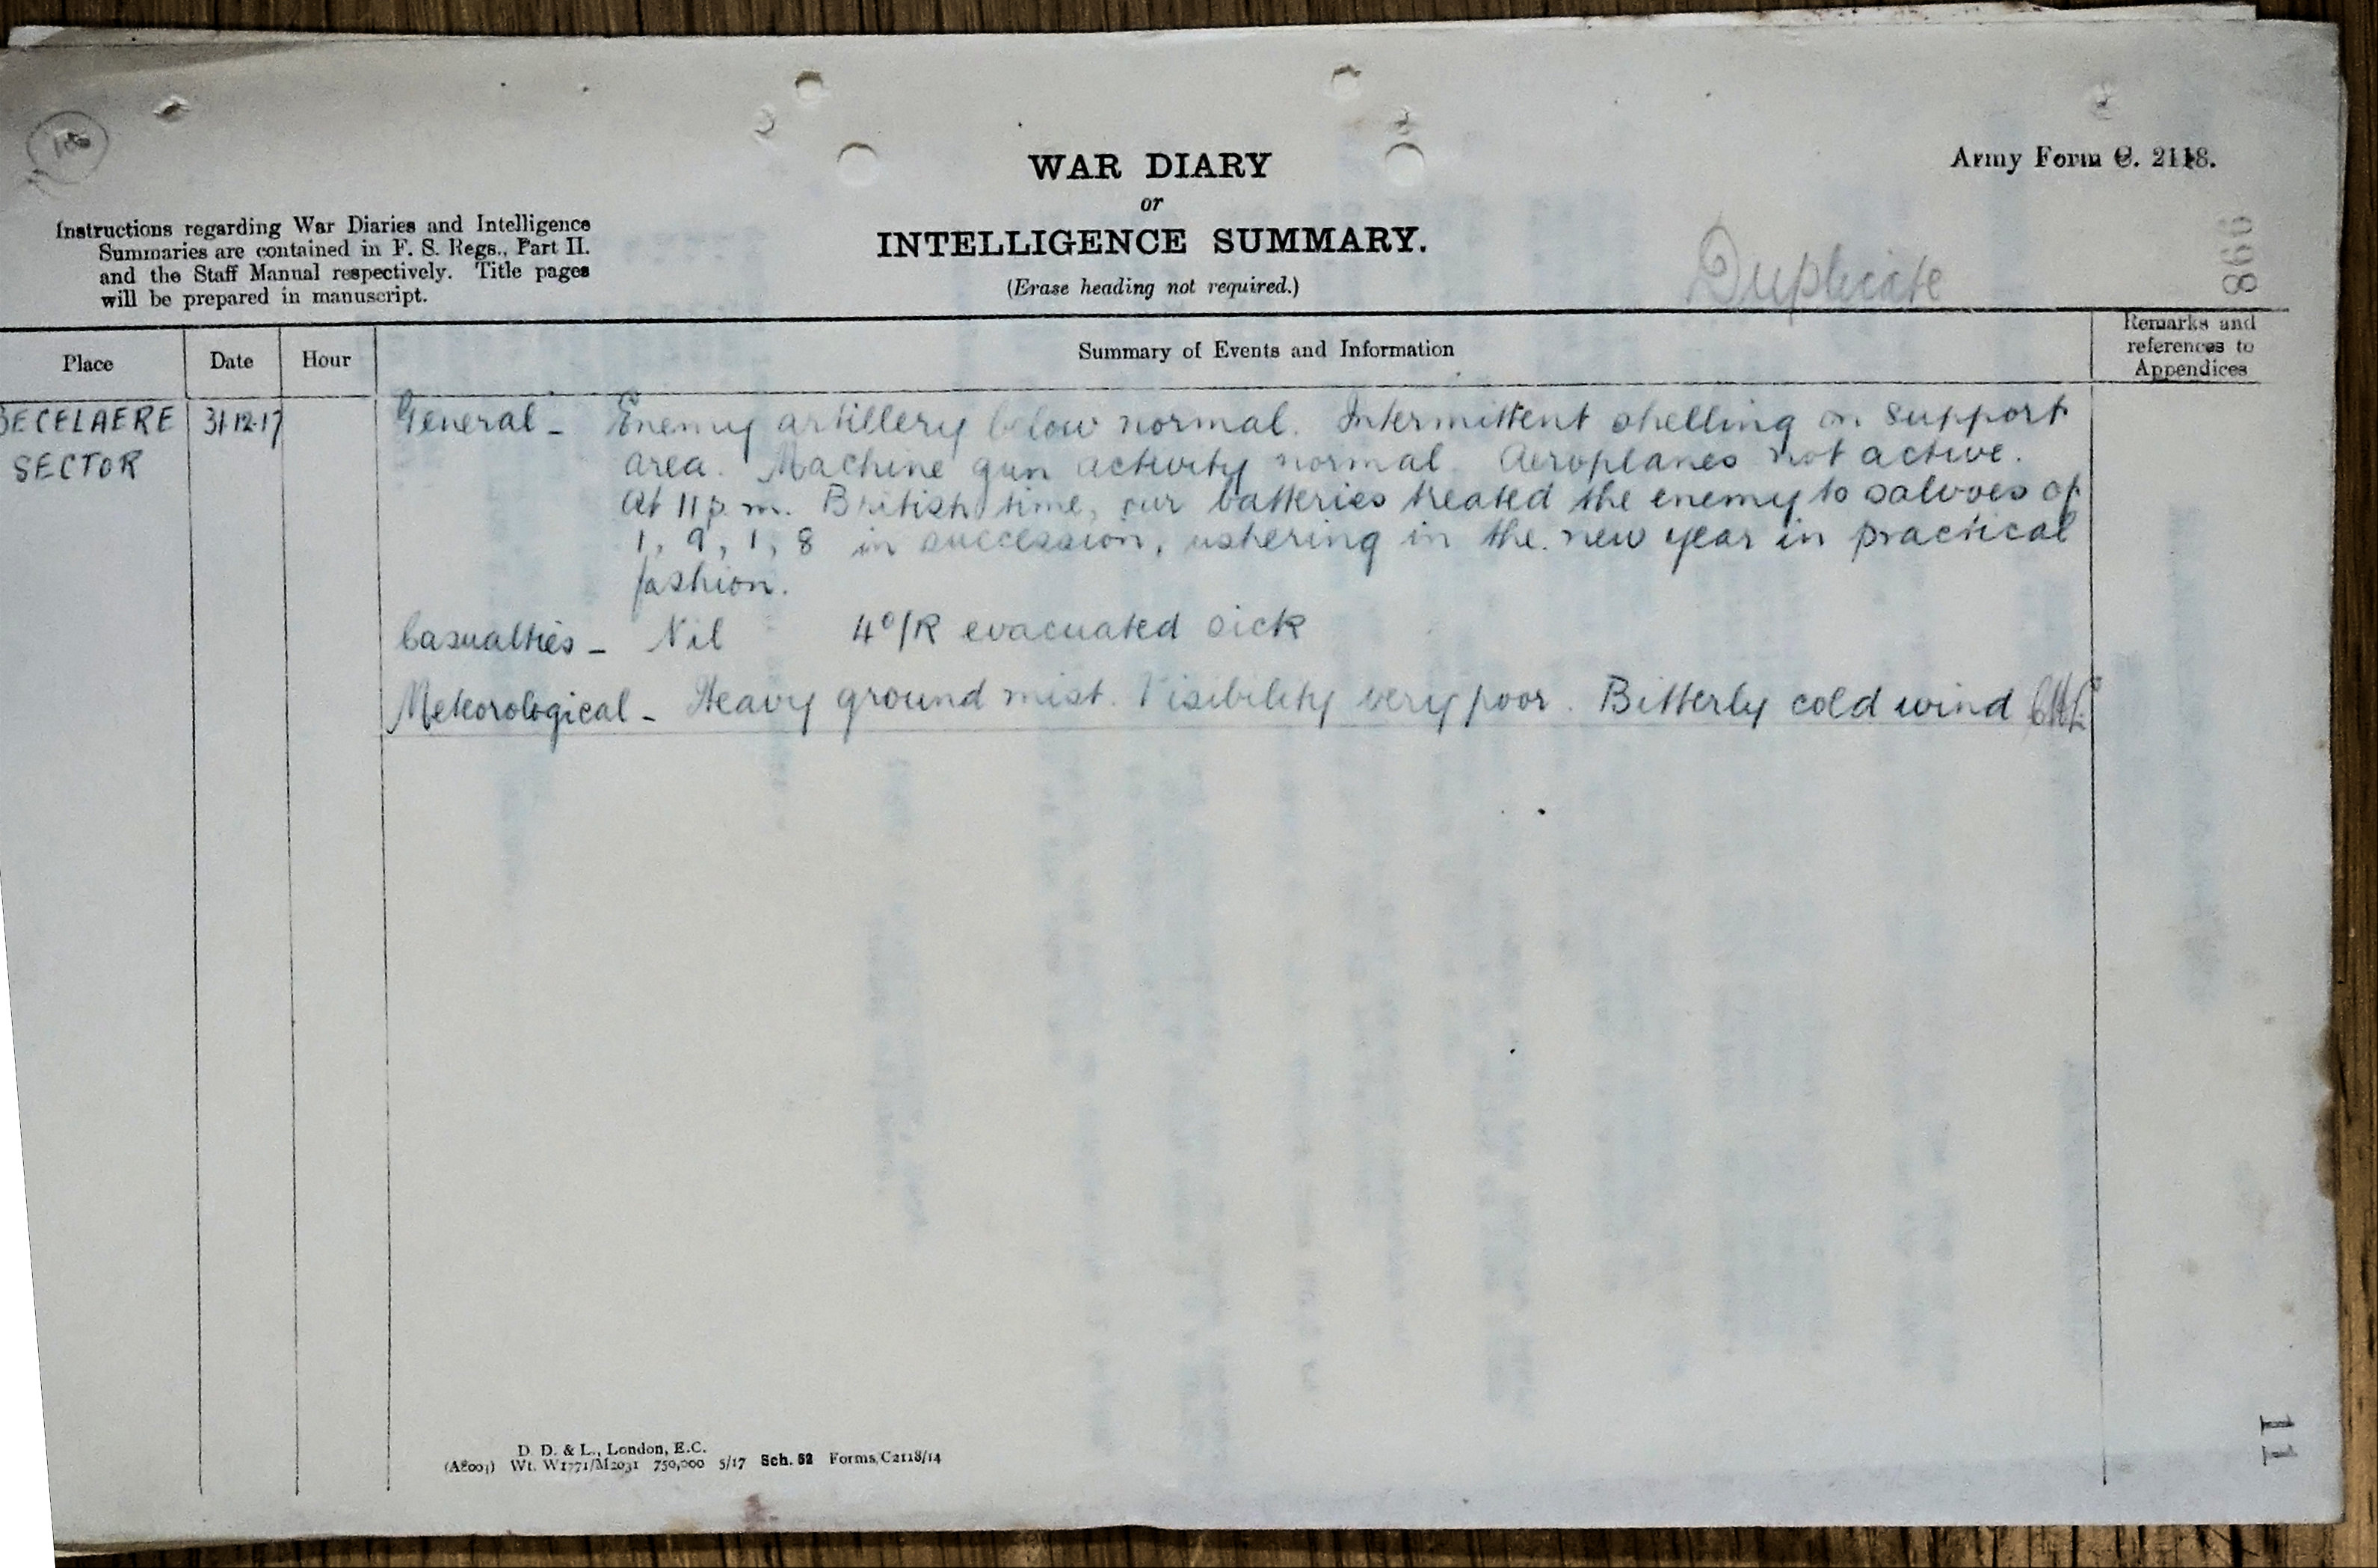 WAR DIARY
or
INTELLIGENCE SUMMARY.
(Erase heading not required.)
Army Form C. 2118.
Instructions regarding War Diaries and Intelligence
Summaries are contained in F. S. Regs., Part II.
and the Staff Manual respectively. Title pages
will be prepared in manuscript.
Duplicate
Place Date Hour Summary of Events and Information Remarks and
references to
Appendices
BECELAERE 31-12-17 General - Enemy artillery below normal. Intermittent shelling on support
SECTOR area. Machine gun activity normal. Aeroplanes not active.
At 11 p.m. British time, our batteries treated the enemy to salvoes of
1, 9, 1, 8 in succession, ushering in the new year in practical
fashion.
Casualties - Nil 4 O/R evacuated sick
Meteorological - Heavy ground mist. Visibility very poor. Bitterly cold wind
D. D. & L., London, E.C.
Wt. W1771/M2031 750,000 5/17 Sch. 52 Forms/C2118/14